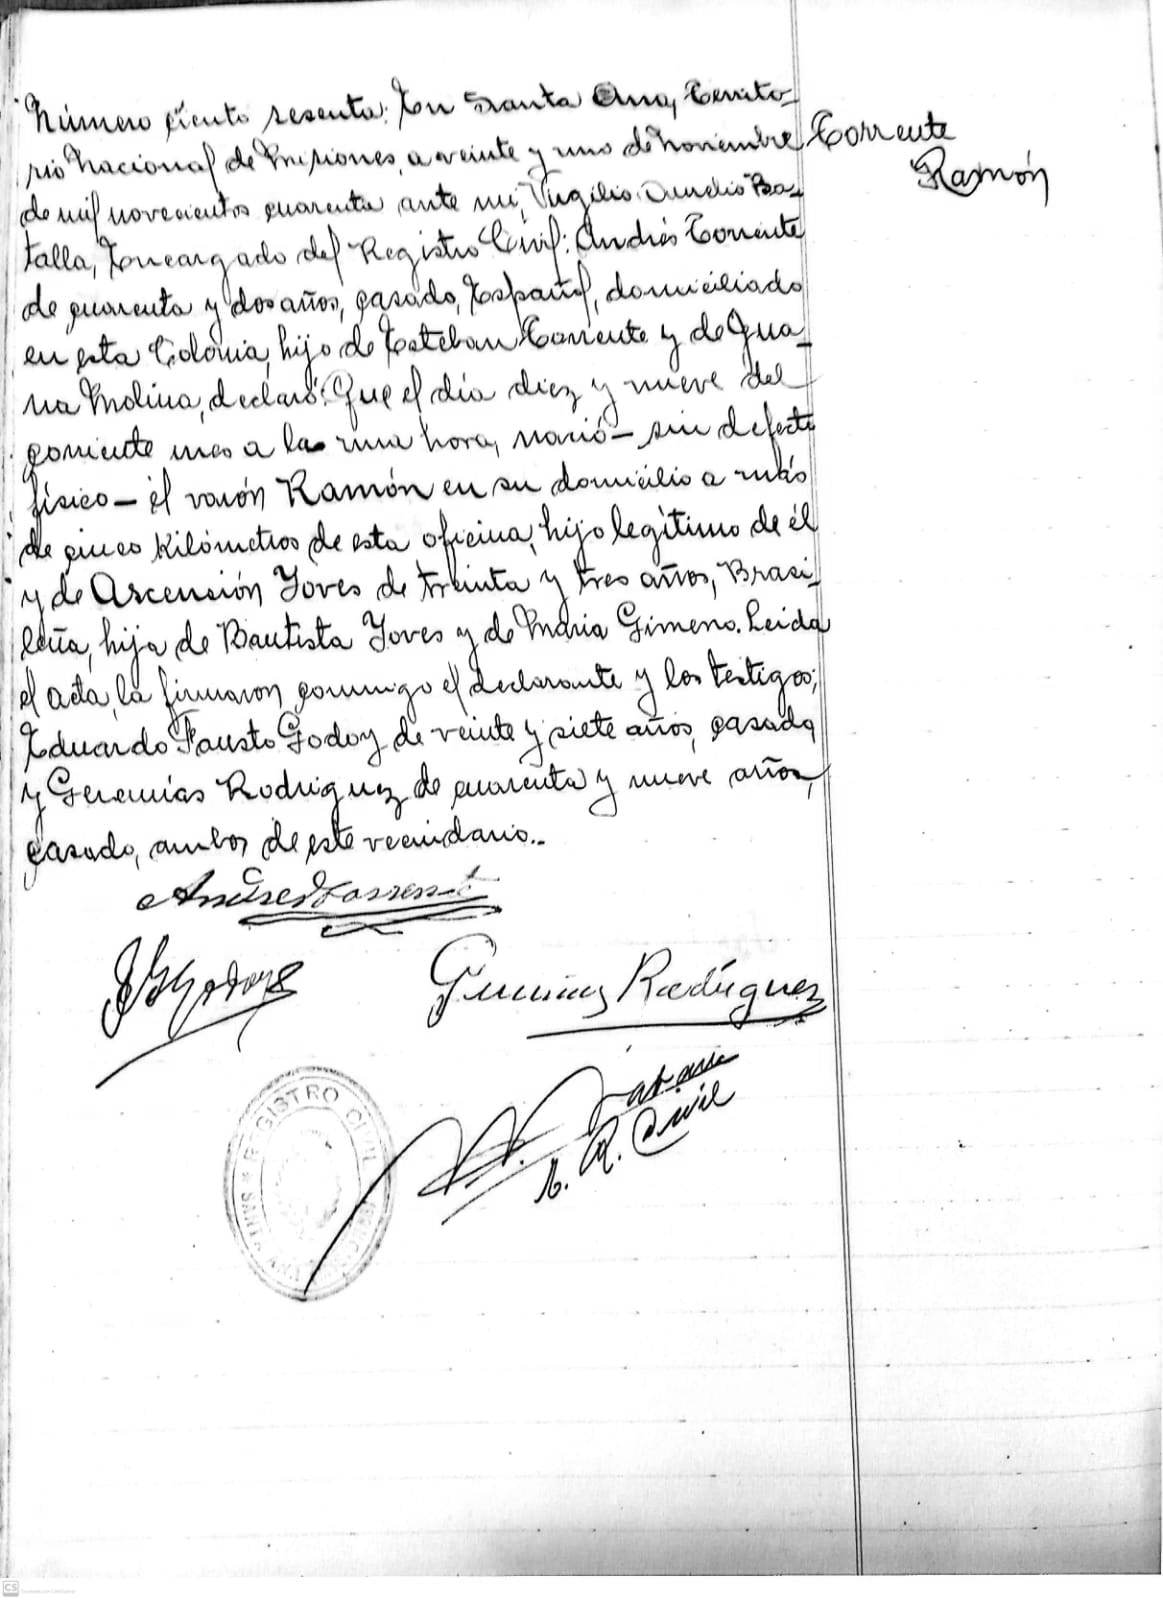 Número ciento sesenta: En Santa Ana, Territo-
rio Nacional de Misiones, a veinte y uno de Noviembre
Torrente
Ramón
de mil novecientos cuarenta ante mi, Virgilio Aurelio Ba-
talla, Encargado del Registro Civil: Andrés Torrente
de cuarenta y dos años, casado, Español, domiciliado
en esta Colonia, hijo de Esteban Torrente y de Jua-
na Molina, declaró: Que el día diez y nueve del
corriente mes a la una hora, nació - sin defecto
físico - el varón Ramón en su domicilio a más
de cinco Kilómetros de esta oficina, hijo legítimo de él
y de Ascensión Yoves de treinta y tres años, Brasi-
leña, hija de Bautista Yoves y de Maria Gimeno. Leida
el acta, la firmaron conmigo el declarante y los testigos;
Eduardo Fausto Godoy de veinte y siete años, casado,
y Geremías Rodriguez de cuarenta y nueve años,
casado, ambos de este vecindario..
Andres Torrente
Geremias Rodriguez
E. R. Civil
REGISTRO CIVIL
SANTA ANA
CS